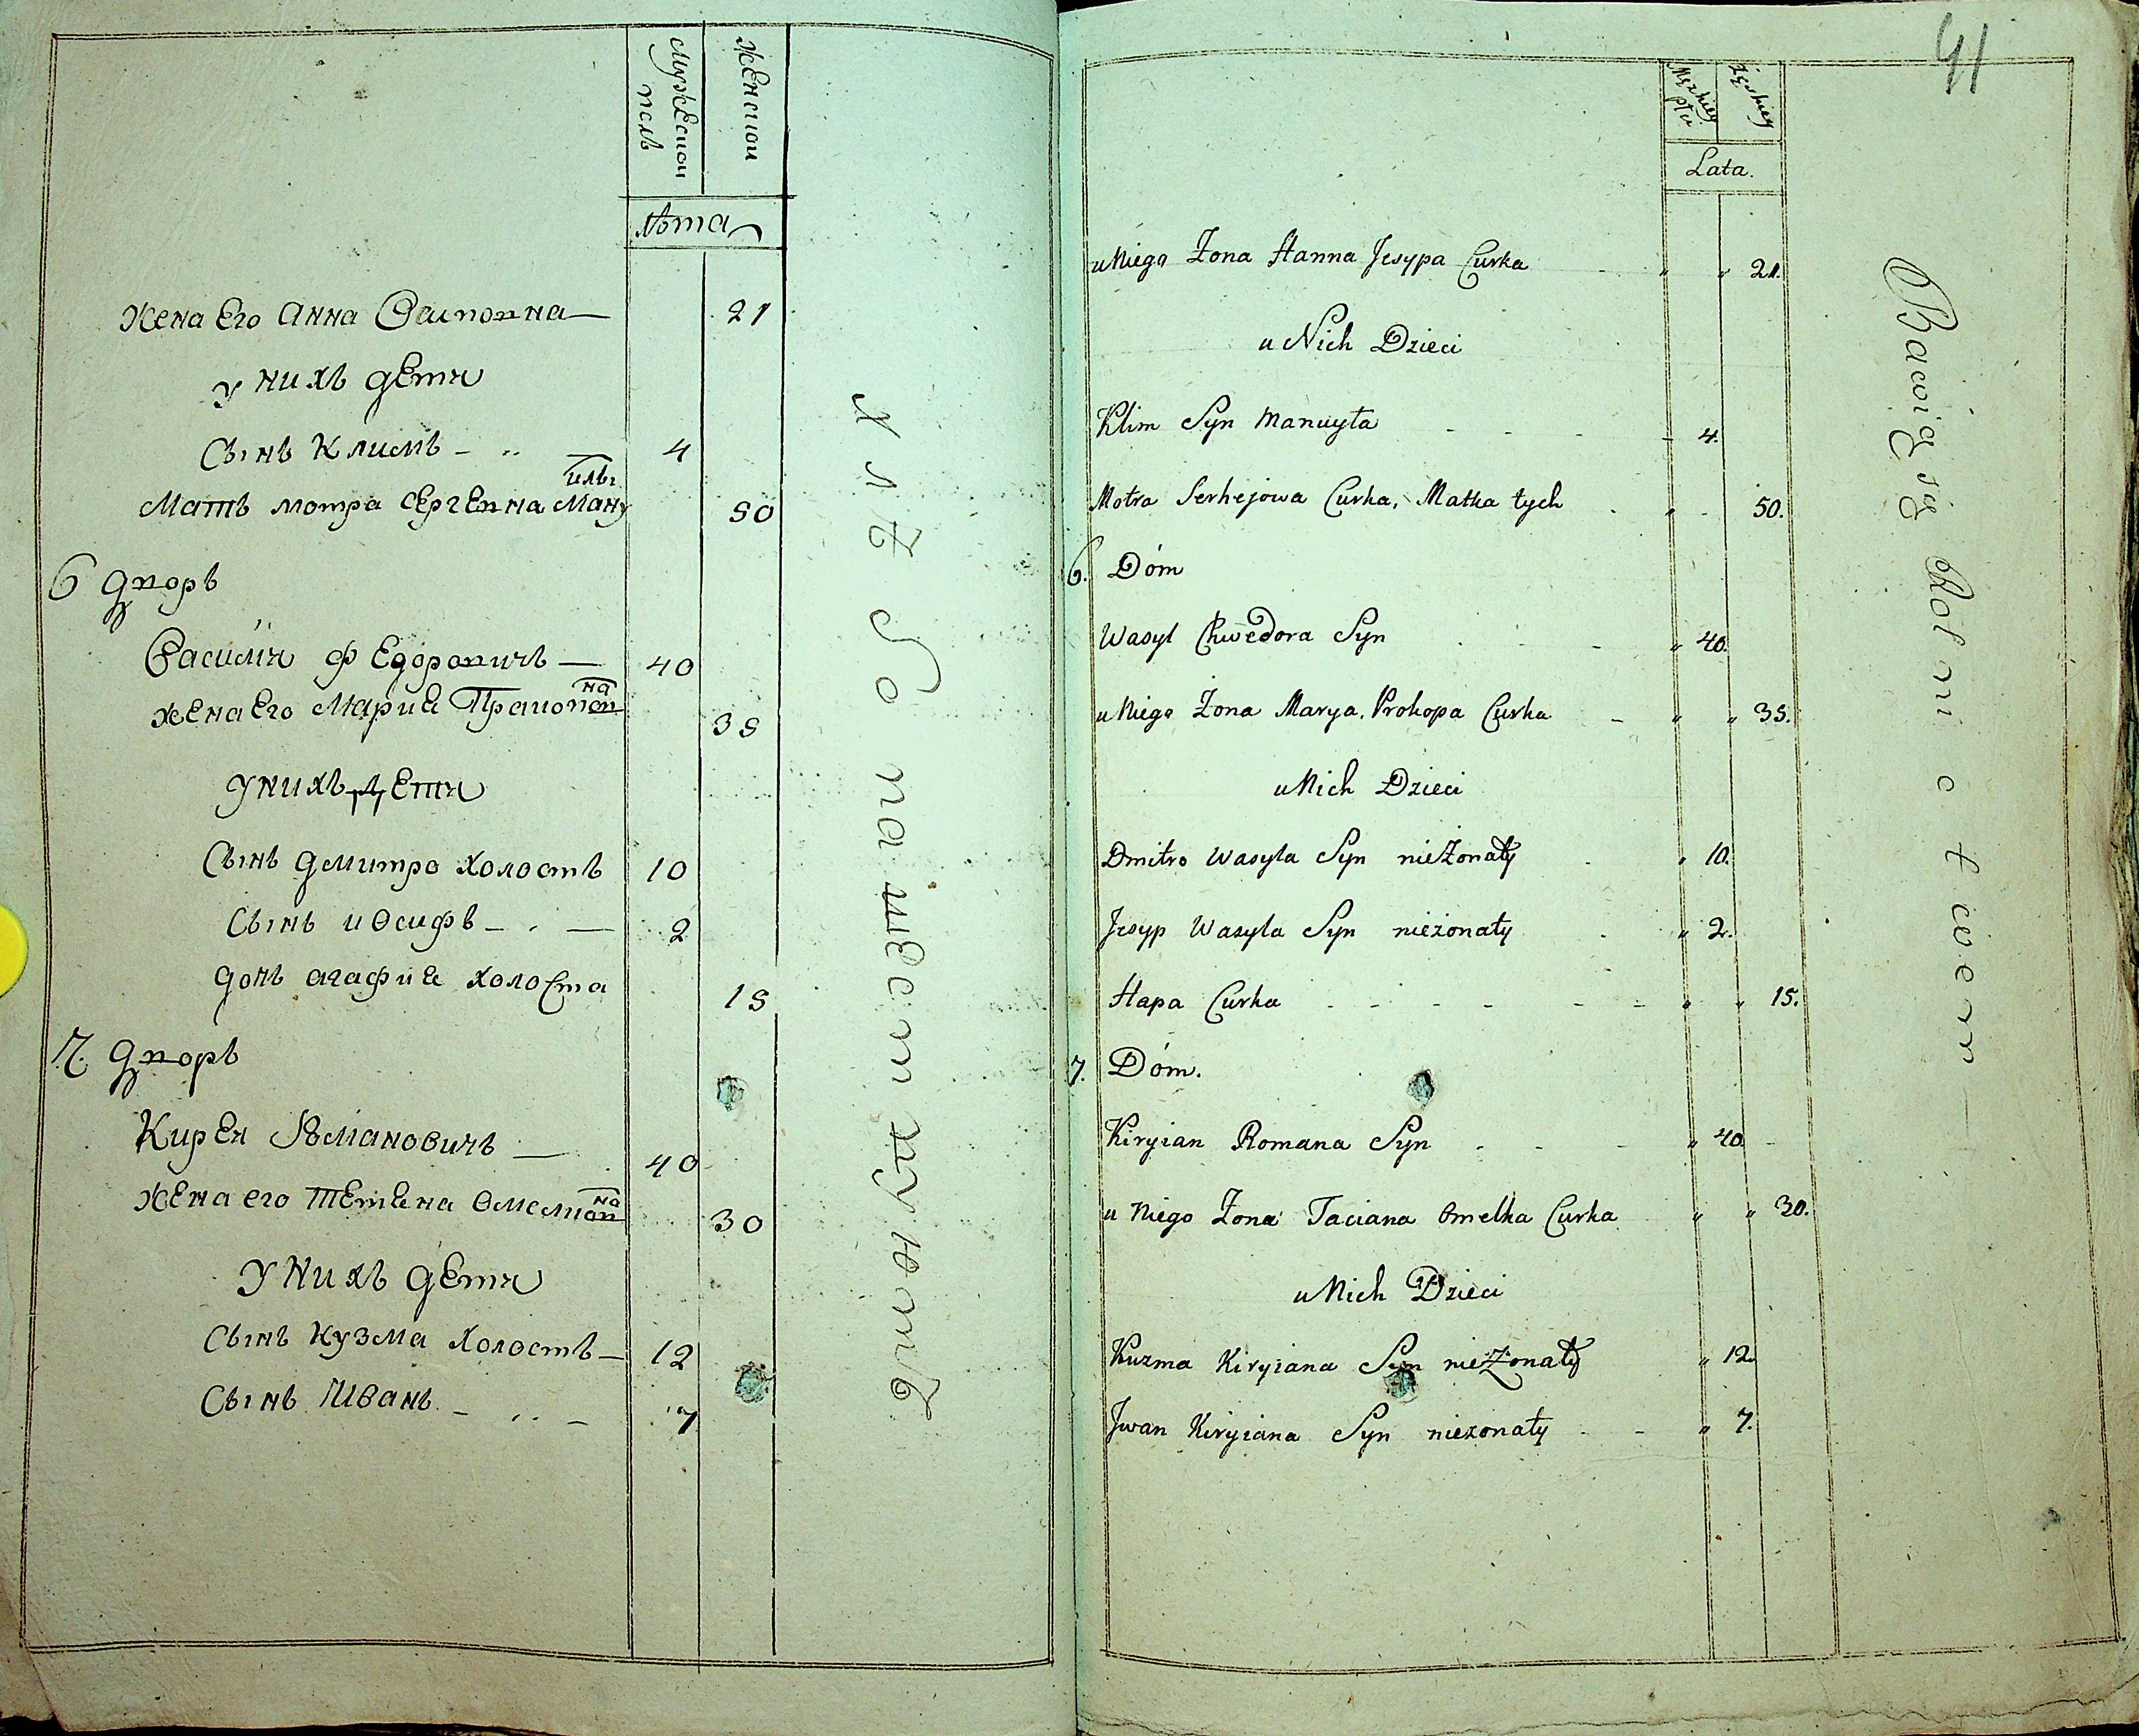 Мужескои
полъ
Женскои
Лѣта
Жена Его Анна 21
у нихъ дети
Сынъ Климъ 4
Мать мотра Сергевна Мануилы 50
6 дворъ
Василии Федоровичъ 40
жена Его Марие Прокоповна 35
у нихъ дети
Сынъ дмитро холостъ 10
Сынъ иосифъ 2
дочь агафие холоста 15
7. дворъ
Кирей Романовичъ 40
жена его Тетиена Омелиовна 30
у нихъ дети
Сынъ кузма холостъ 12
Сынъ Иванъ 7
41
Męzkiey
płci
Żęskiey
Lata.
u Niego Żona Hanna Jesypa Curka 21.
u Nich Dzieci
Klim Syn Manuyła 4.
Motra Serhejowa Curka, Matka tych 50.
6. Dóm
Wasyl Chwedora Syn 40.
u Niego Żona Marya, Prokopa Curka 35.
u Nich Dzieci
Dmitro Wasyla Syn nieżonaty 10.
Jesyp Wasyla Syn nieżonaty 2.
Hapa Curka 15.
7. Dóm.
Kiryian Romana Syn 40.
u Niego Żona Taciana Omelka Curka 30.
u Nich Dzieci
Kuzma Kiryiana Syn nieżonaty 12.
Jwan Kiryiana Syn nieżonaty 7.
Bawią się Rolnictwem